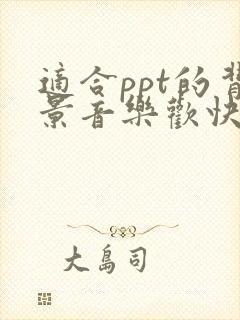 適合ppt的背
景音樂歡快
大島司